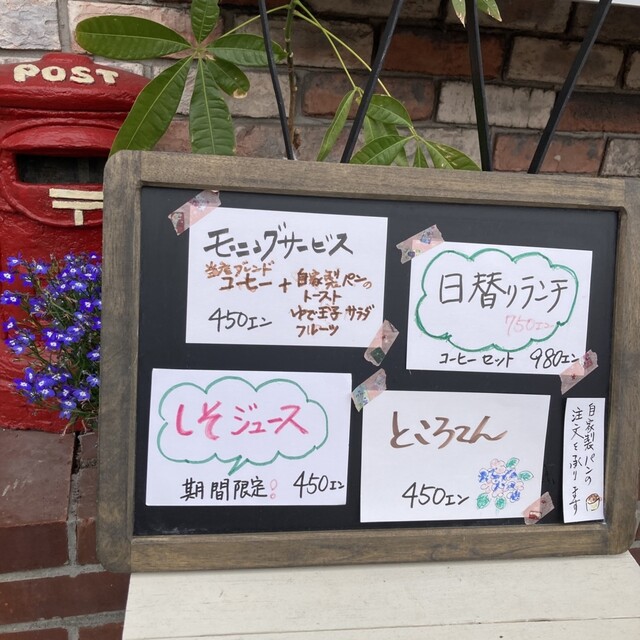 POST
モーニングサービス
当店ブレンド
コーヒー + 自家製パンの
トースト
ゆで玉子 サラダ
フルーツ
450エン
日替りランチ
750エン
コーヒーセット 980エン
しそジュース
期間限定! 450エン
ところてん
450エン
自家製パンの
注文を承ります